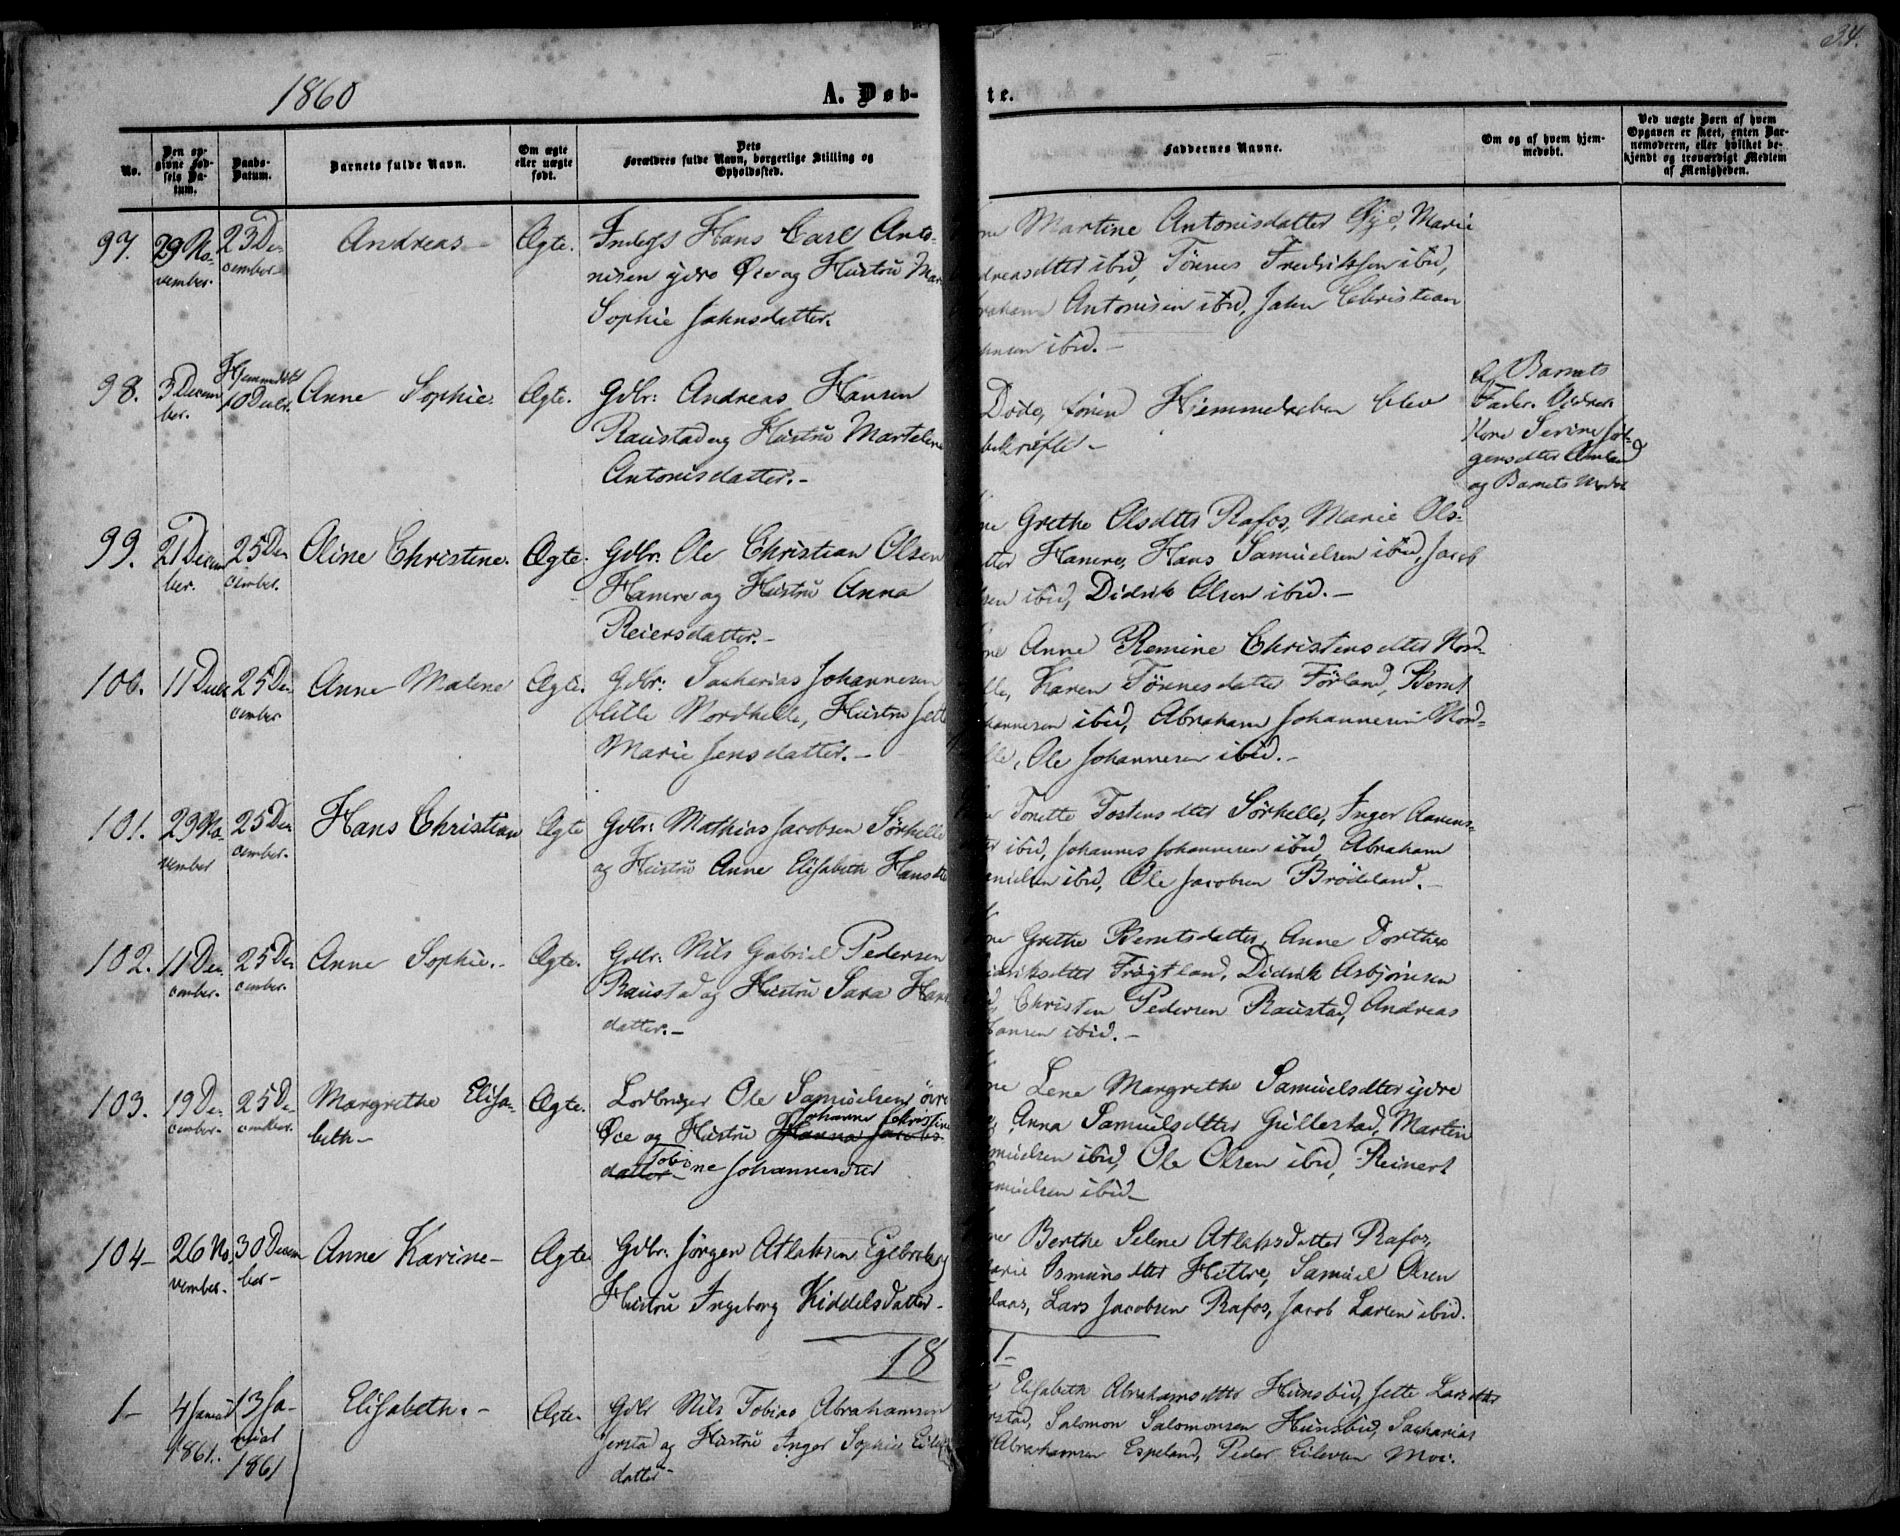 34.
1860
A. Døb-
te.
No.
Den op-
givne Fød-
sels Da-
tum.
Daabs-
Datum.
Barnets fulde Navn.
Om ægte
eller uægte
født.
Dets
Forældres fulde Navn, borgerlige Stilling og
Opholdssted.
Faddernes Navne.
Om og af hvem hjem-
medøbt.
Ved uægte Børn af hvem
Opgaven er skeet, enten Bar-
nemoderen, eller hvilket be-
kjendt og troværdigt Medlem
af Menigheden.
97. 29 No-
vember.
23 De-
cember.
Andreas
Ægte.
Hans Carl
nisen ydre Øie og Hustru Mar
Sophie Jahnsdatter.
Martine Antonisdatter Øye, Marie
ibid, Tønnes Fredriksen ibid,
Antonisen ibid, Jahn Christian
ibid.
98. 3 Decem
ber.
Hjemmedøbt
10 Decbr.
Anne Sophie.
Ægte.
Gdbr: Andreas Hansen
Raustad og Hustru Martelene
Antonisdatter.-
Døde, førend Hjemmedaaben blev
bekræftet -
Af Barnets
Fader.
Kone Serine Jør-
gensdtter
og Barnets Moder
99. 21 Decem
ber.
25 De-
cember.
Oline Christine.
Ægte.
Gdbr: Ole Christian Olsen
Hamre og Hustru Anna
Reiersdatter.-
Grethe Olsdtter Rafos, Marie Ols-
tter Hamre, Hans Samuelsen ibid, Jacob
sen ibid, Didrik Olsen ibid.-
100. 11 Decbr
25 De-
cember
Anne Malene
Ægte.
Gdbr: Sacharias Johannesen
lille Nordhelle, Hustru Jette
Marie Jensdatter.-
Anne Remine Christensdtter Nord-
lle, Karen Tønnesdatter Førland, Bernt
hannesen ibid, Abraham Johannesen Nord-
lle, Ole Johannesen ibid.-
101. 29 No-
vember
25 De-
cember.
Hans Christian
Ægte
Gdbr: Mathias Jacobsen Sørhelle
og Hustru Anne Elisabeth Hansdtr
Tonette Tostensdtter Sørhelle, Inger Aanens-
ibid, Johannes Johannesen ibid, Abraham
nielsen ibid, Ole Jacobsen Brødeland.-
102. 11 De-
cember.
25 De-
cember.
Anne Sophie.-
Ægte.
Gdbr: Nils Gabriel Pedersen
Raustad og Hustru Sara Hans
datter.-
Grethe Berntsdatter, Anne Dorthea
driksdtter Frøytland, Didrik Asbjørnsen
Christen Pedersen Raustad, Andreas
Hansen ibid.-
103. 19 De-
cember.
25 De-
cember.
Margrethe Elisa-
beth-
Ægte.
Ole Samuelsen øvre
Øie og Hustru Johanne Christine
Hanna Jacobs-
datter Tobine Johannesdtter
Lene Margrethe Samuelsdtter ydre
Anna Samuelsdtter Gullestad, Martin
muelsen ibid, Ole Olsen ibid, Reinert
amuelsen ibid-
104- 26 No-
vember.
30 Decem
ber-
Anne Karine-
Ægte.
Gdbr: Jørgen Atlaksen Egelbrek og
Hustru Ingeborg Kiddelsdatter-
Berthe Selene Atlaksdatter Rafos,
arie Osmunsdtter Hittre, Samuel Olsen
laas, Lars Jacobsen Rafos, Jacob Larsen ibid.
18
1-
1- 4 Januar
1861.
13 Ja-
nuar
1861
Elisabeth.-
Ægte-
Gdbr Nils Tobias Abrahamsen
Jerstad og Hustru Inger Sophie
datter-
Elisabeth Abrahamsdtter Hunsbed, Jette Larsdtter
rstad, Salomon Salomonsen Hunsbed, Sacharias
Abrahamsen Espeland, Peder Eilevsen Moi.